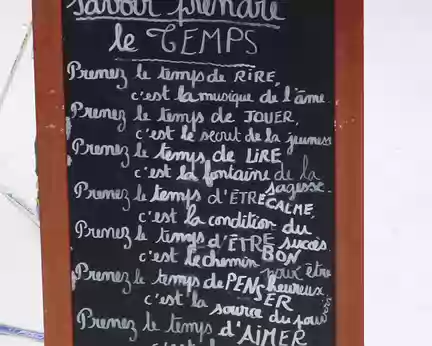 savoir prendre
le TEMPS
Prenez le temps de RIRE,
c'est la musique de l'âme.
Prenez le temps de JOUER,
c'est le secret de la jeuness
Prenez le temps de LIRE
c'est la fontaine de la sagesse.
Prenez le temps d'ÊTRE CALME,
c'est la condition du succès.
Prenez le temps d'ÊTRE BON
c'est le chemin pour être heureux
Prenez le temps de PENSER
c'est la source du pouv
Prenez le temps d'AIMER
c'est